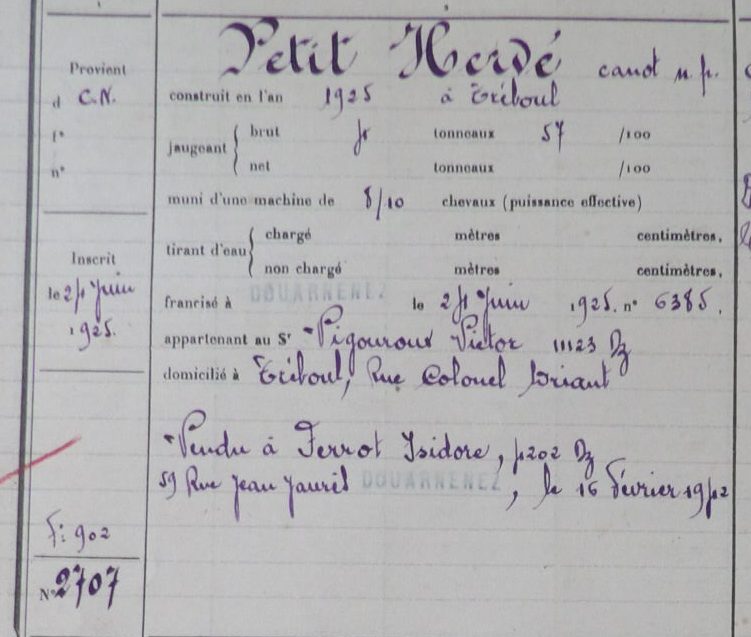 Petit Hervé canot n. p.
Provient
d C.N.
f°
n°
construit en l'an 1925 à Tréboul
jaugeant brut 4 tonneaux 57 /100
net tonneaux /100
muni d'une machine de 8/10 chevaux (puissance effective)
tirant d'eau chargé mètres centimètres,
non chargé mètres centimètres,
Inscrit
le 24 Juin
1925.
francisé à DOUARNENEZ le 24 Juin 1925. n° 6385.
appartenant au Sr Vigouroux Victor 11123 Dz
domicilié à Tréboul, Rue Colonel Driant
Vendu à Ferrot Isidore, 4202 Dz
59 Rue Jean Jaurès DOUARNENEZ, le 16 Février 1942
F: 902
N° 2707